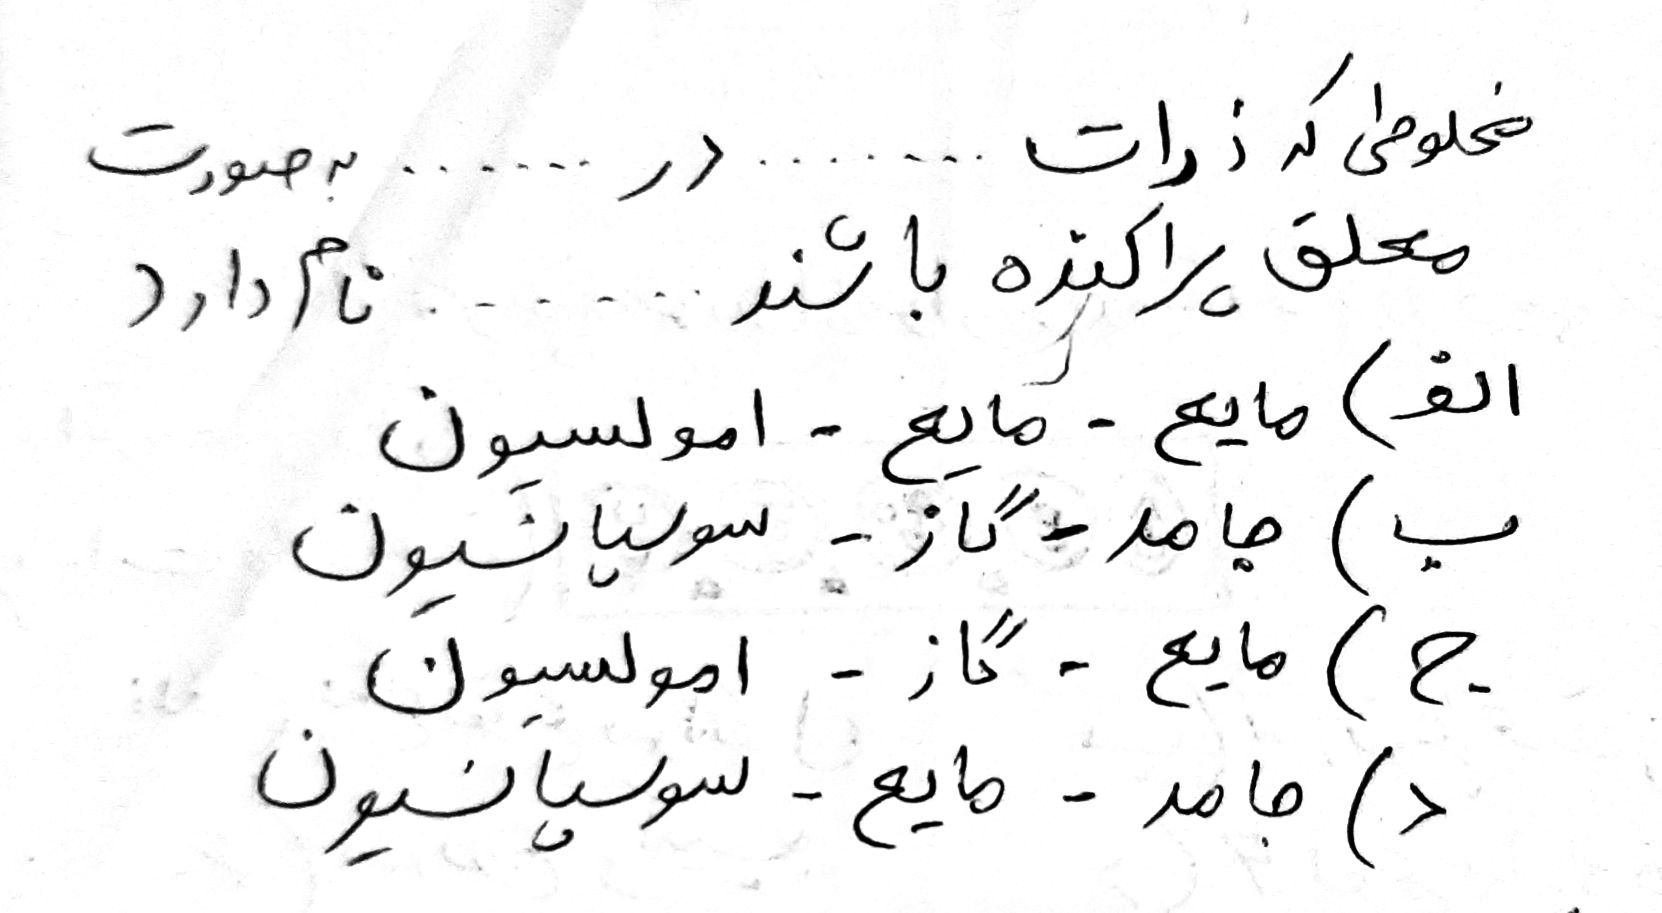 مخلوطی که ذرات ........ در ....... به صورت
معلق پراکنده باشند ....... نام دارد
الف) مایع - مایع - امولسیون
ب) جامد - گاز - سوسپانسیون
ج) مایع - گاز - امولسیون
د) جامد - مایع - سوسپانسیون